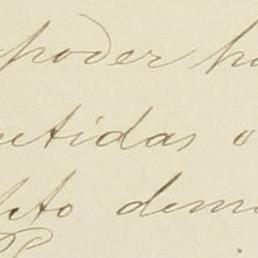 poder ha
etidas o
leto dem